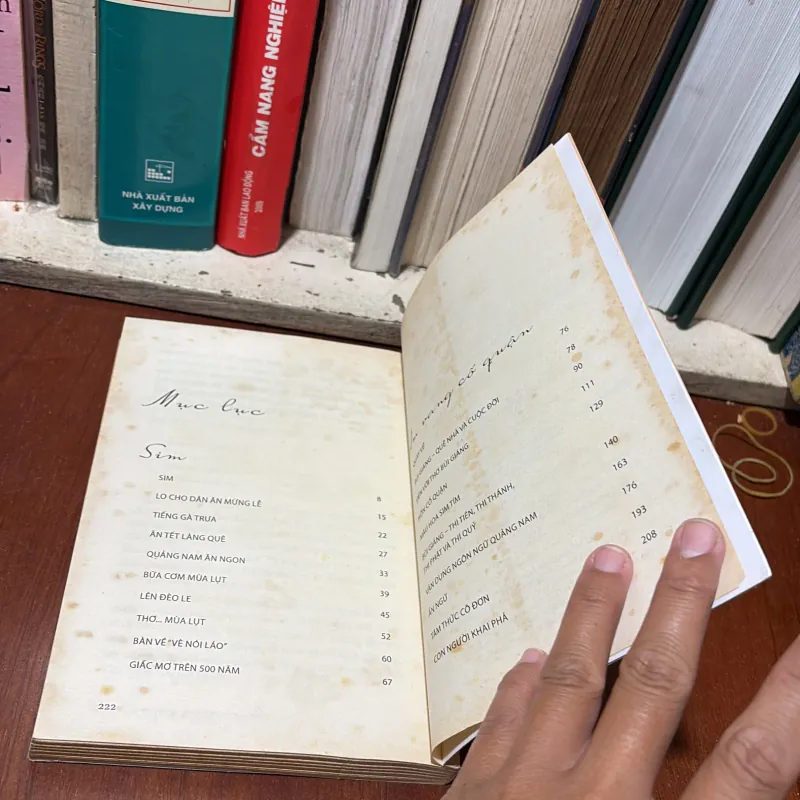 NHÀ XUẤT BẢN
XÂY DỰNG
CẨM NANG NGHIỆP
NHÀ XUẤT BẢN LAO ĐỘNG
Mục lục
Sim
SIM 8
LO CHO DÂN ĂN MỪNG LỄ 15
TIẾNG GÀ TRƯA 22
ĂN TẾT LÀNG QUÊ 27
QUẢNG NAM ĂN NGON 33
BỮA CƠM MÙA LỤT 39
LÊN ĐÈO LE 45
THƠ... MÙA LỤT 52
BÀN VỀ "VÈ NÓI LÁO" 60
GIẤC MƠ TRÊN 500 NĂM 67
222
vang cố quận
76
GIÁNG – QUÊ NHÀ VÀ CUỘC ĐỜI 78
VỚI THƠ BÙI GIÁNG 90
CỐ QUẬN 111
MÀU HOA SIM TÍM 129
BÙI GIÁNG – THI TIÊN, THI THÁNH,
THI PHẬT VÀ THI QUỶ 140
VẬN DỤNG NGÔN NGỮ QUẢNG NAM 163
ẨN NGỮ 176
TÂM THỨC CÔ ĐƠN 193
CON NGƯỜI KHAI PHÁ 208